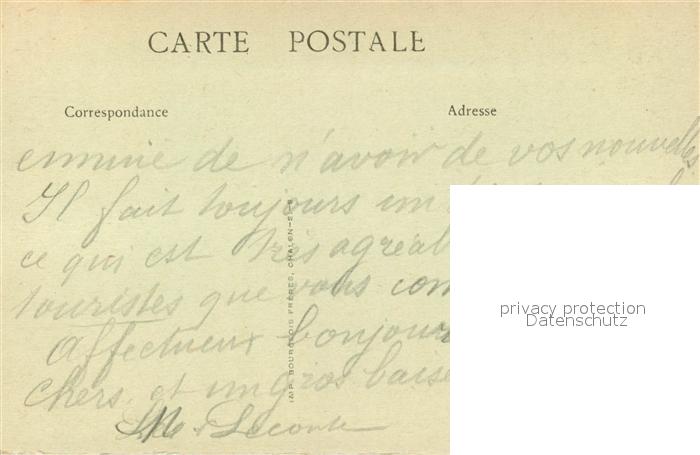 CARTE POSTALE
Correspondance
Adresse
ennuie de n'avoir de vos nouvelles
Il fait toujours un
ce qui est très agréab
touristes que vous com
Affectueux bonjour
chers et un gros baise
Leconte
IMP. BOURGEOIS FRÈRES, CHALON-S-S
privacy protection
Datenschutz